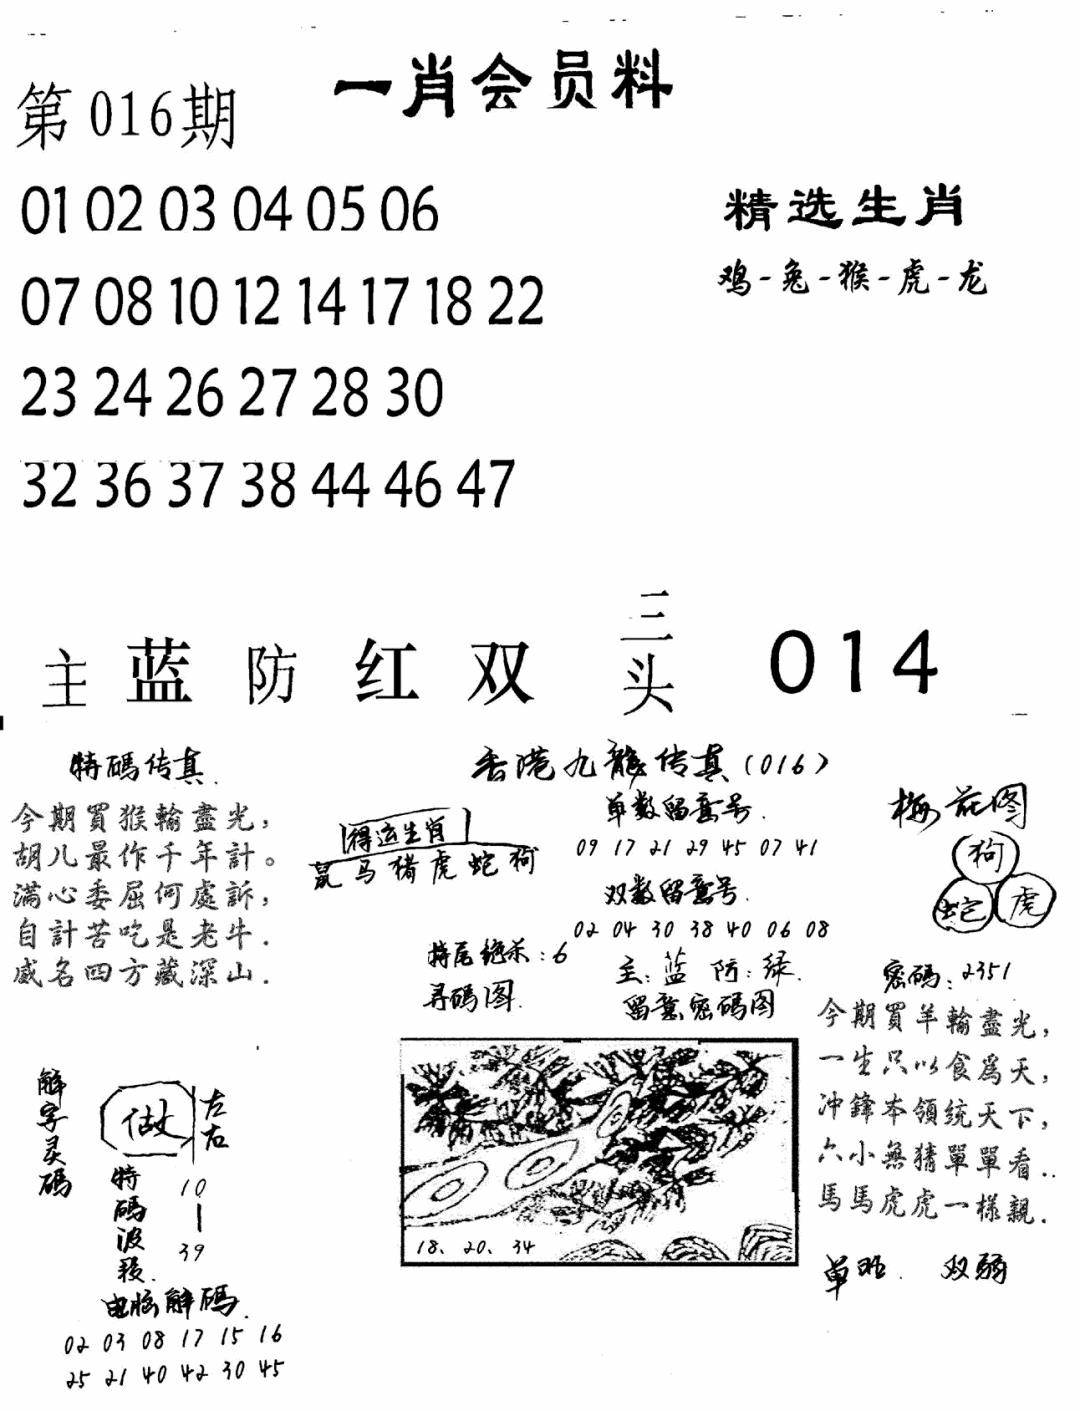 一肖会员料
第016期
01 02 03 04 05 06
07 08 10 12 14 17 18 22
23 24 26 27 28 30
32 36 37 38 44 46 47
精选生肖
鸡-兔-猴-虎-龙
主蓝防红双三头014
特碼传真.
今期買猴輸盡光,
胡儿最作千年計。
滿心委屈何處訴,
自計苦吃是老牛.
威名四方藏深山.
香港九龍传真(016)
得运生肖
鼠马猪虎蛇狗
单数留意号.
09 17 21 29 45 07 41
双数留意号.
02 04 30 38 40 06 08
特尾绝杀:6
主:蓝防:绿.
寻碼图.
留意密碼图
18、20、34
梅花图
狗
蛇虎
密碼:2351
今期買羊輸盡光,
一生只以食爲天,
冲鋒本領统天下,
六小無猜單單看..
馬馬虎虎一樣親.
单旺. 双弱
解字灵碼
做
左右
特碼波段.
10-39
电脑解碼.
02 03 08 17 15 16
25 21 40 42 30 45